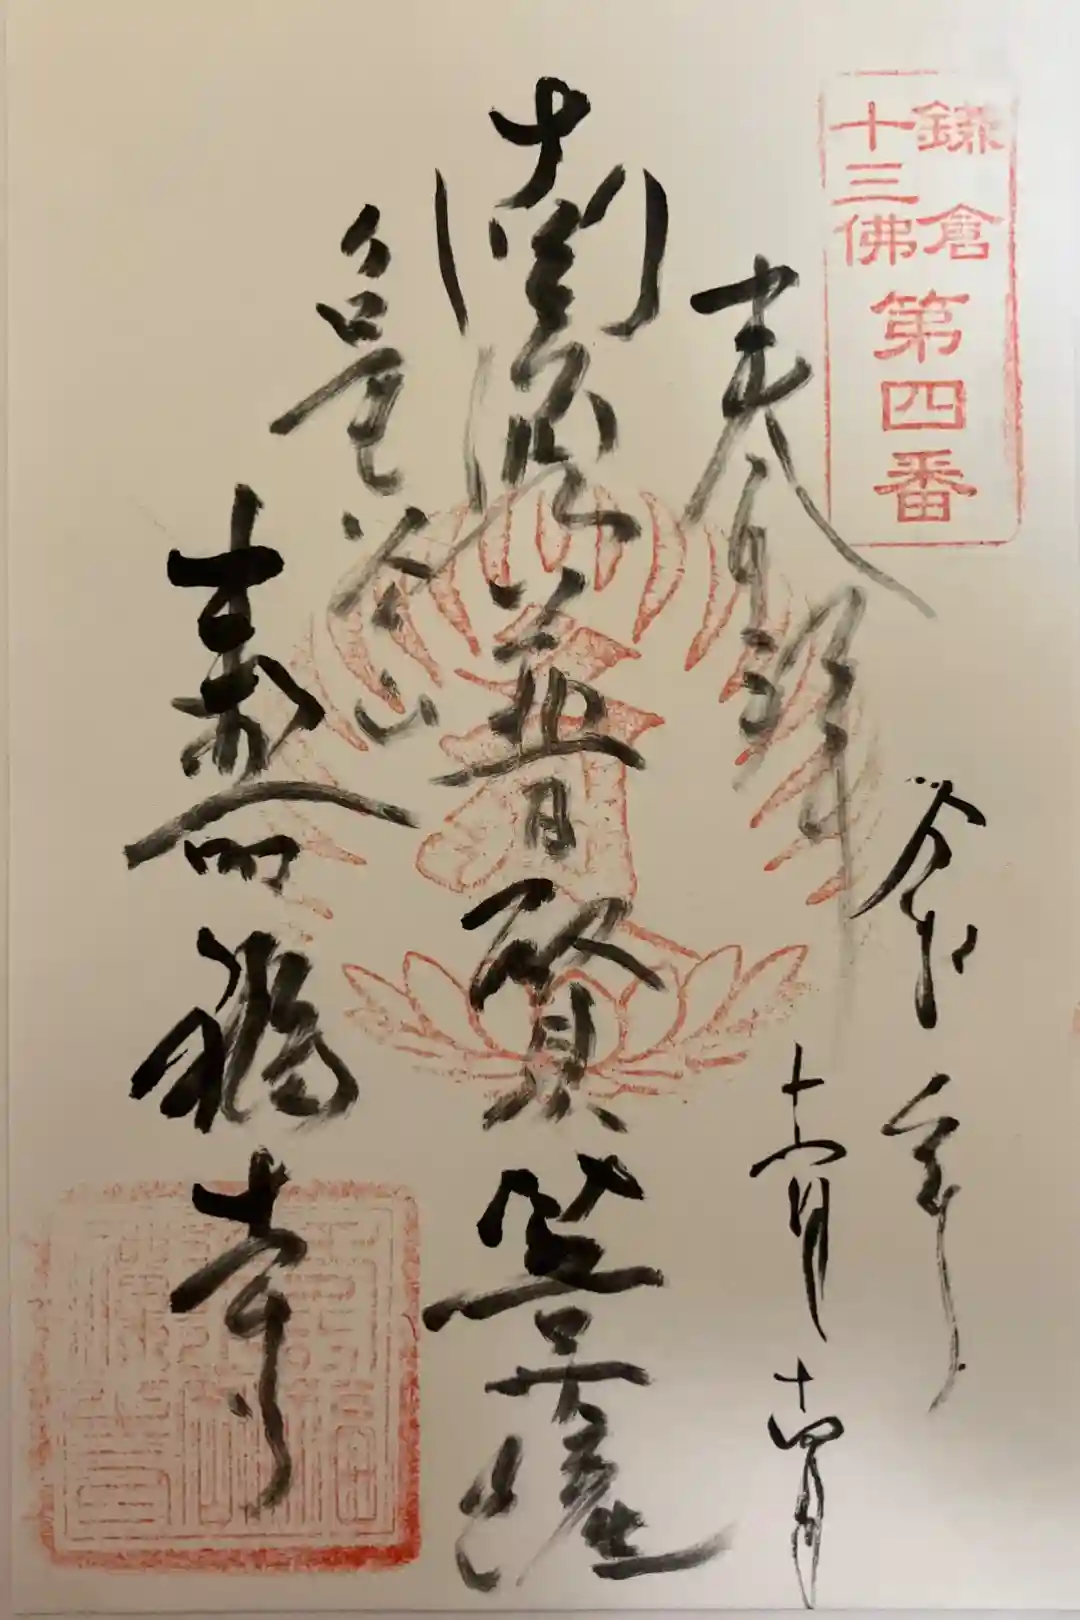 鎌倉
十三佛
第四番
奉拝
令和年
十一月
十四日
南無普賢菩薩
亀谷山
壽福寺